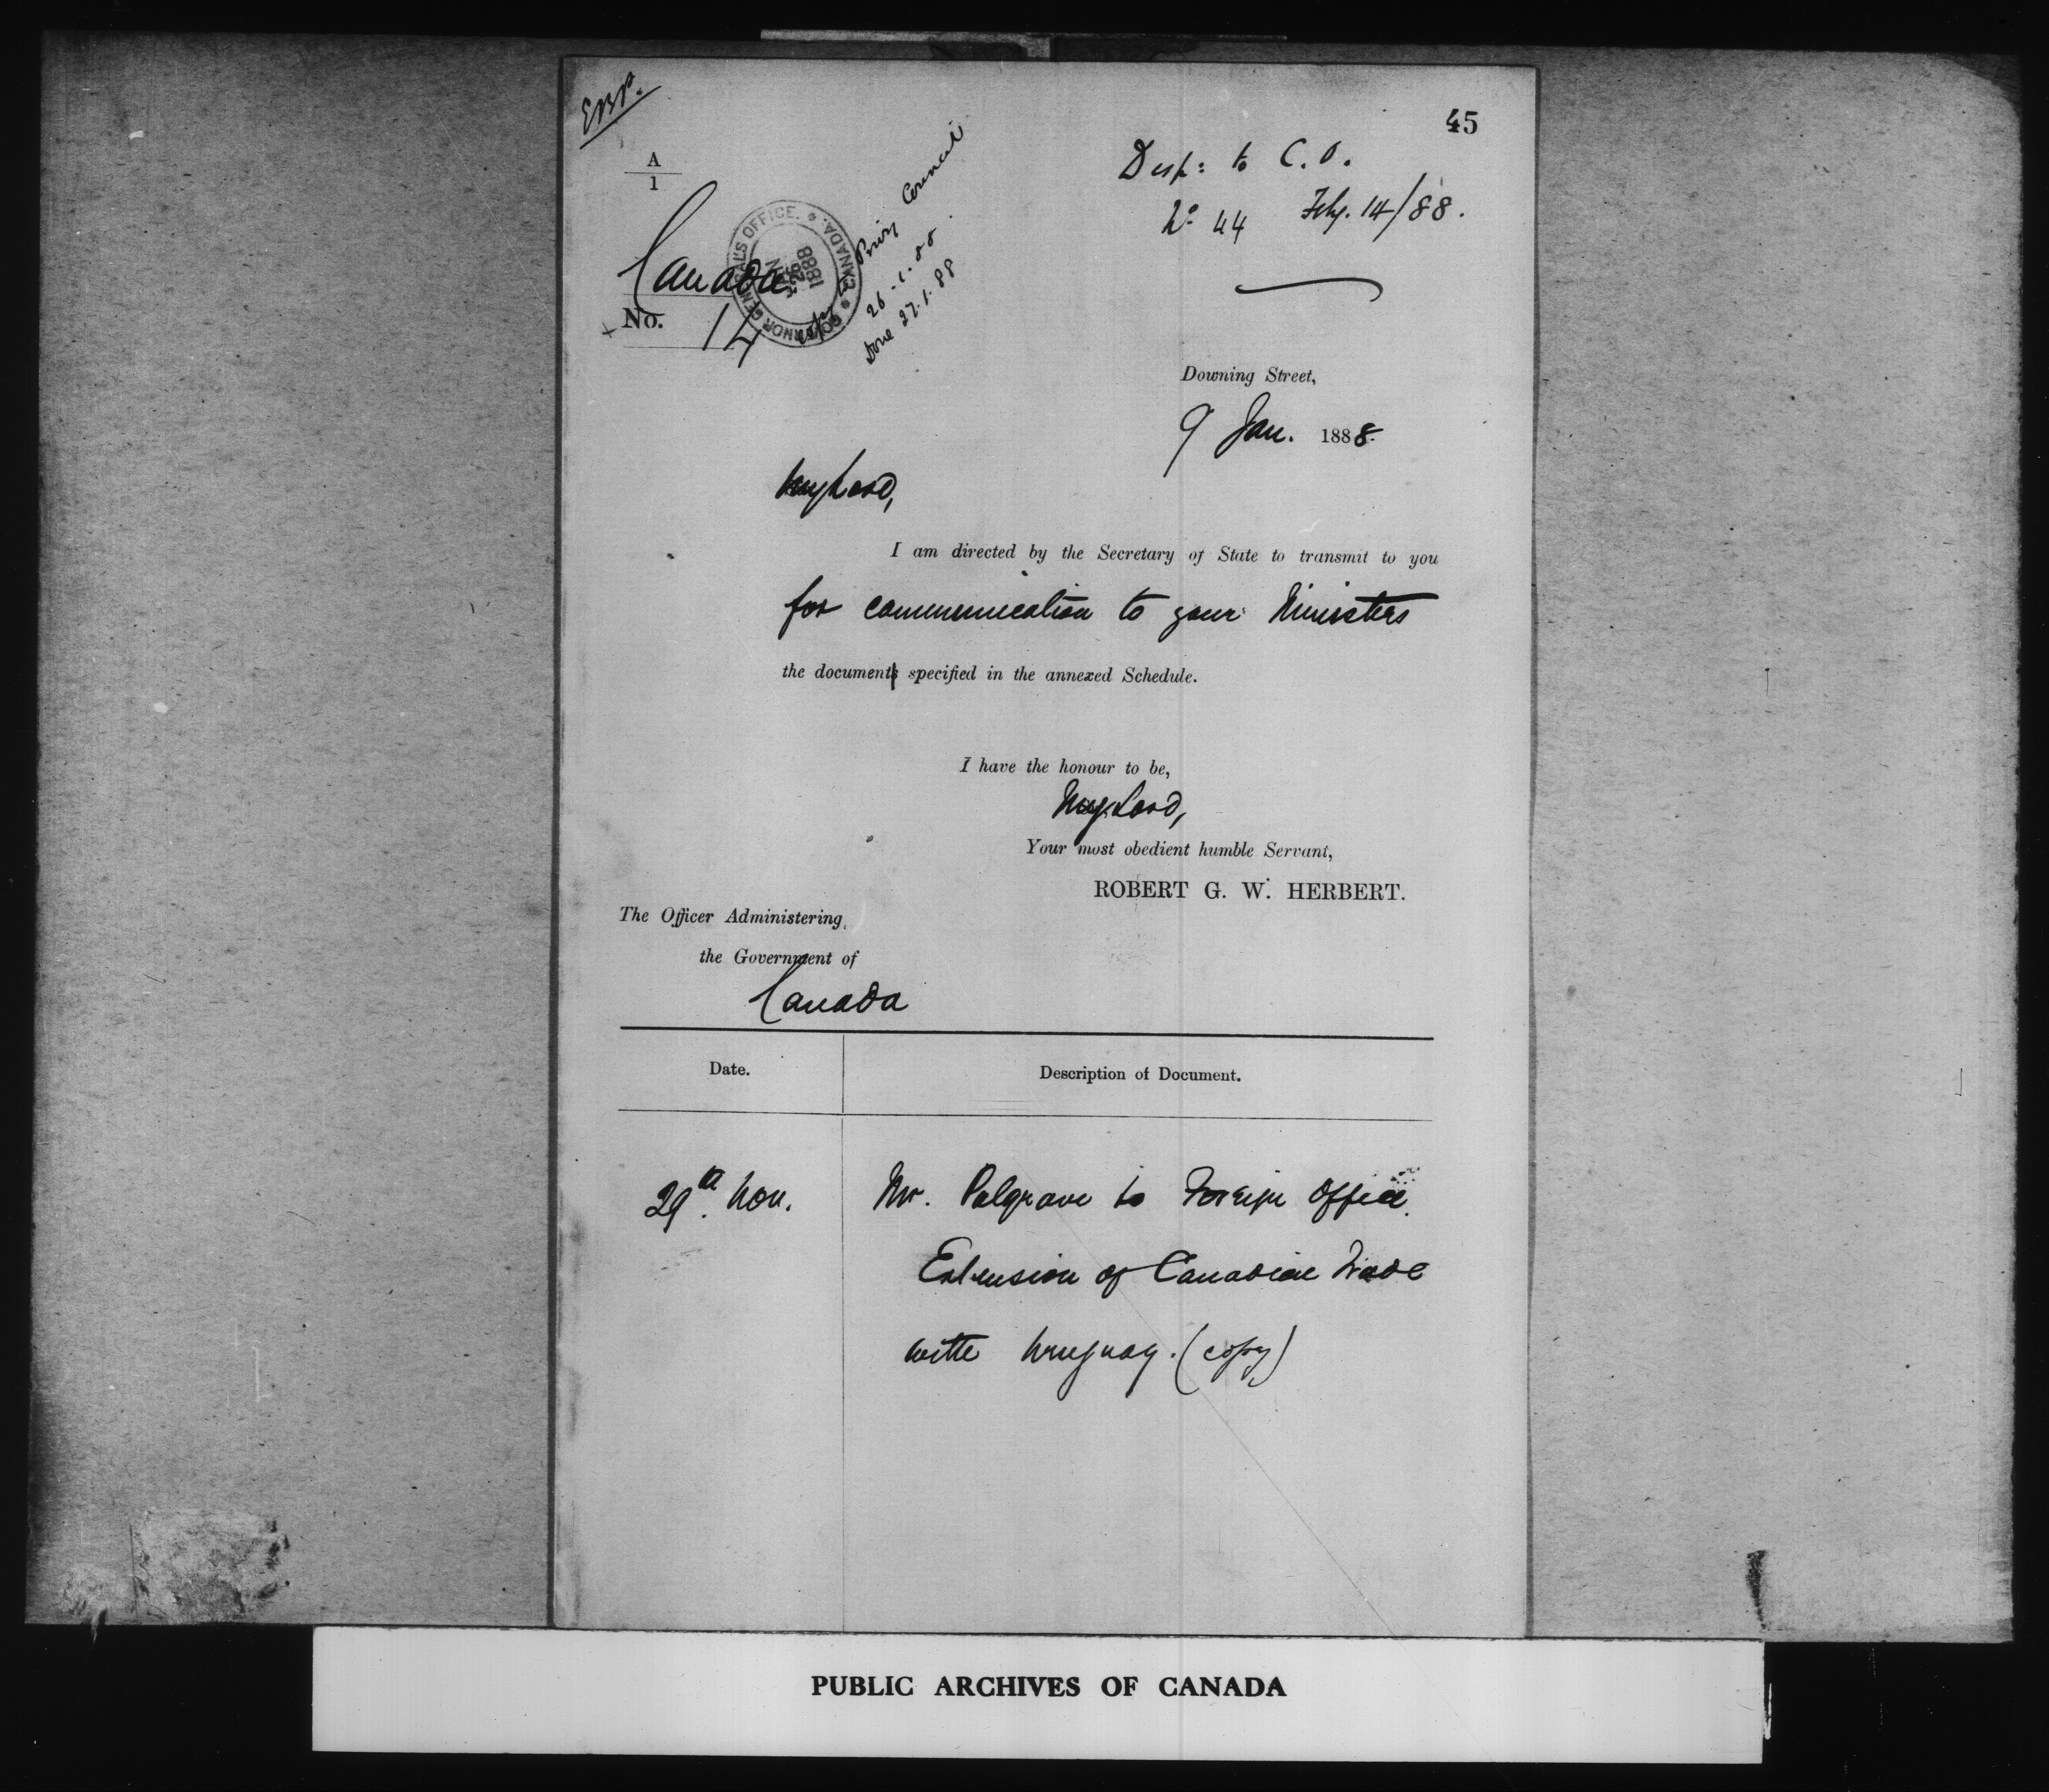 EBP.
45
A
1
Desp: to C.O.
No 44 Feby. 14/88.
Canada
No. 14
GOVERNOR GENERAL'S OFFICE. CANADA.
26
1888
Copy to Privy Council
26.1.88.
Done 27.1.88
Downing Street,
9 Jan. 1888.
My Lord,
I am directed by the Secretary of State to transmit to you
for communication to your Ministers
the document specified in the annexed Schedule.
I have the honour to be,
My Lord,
Your most obedient humble Servant,
ROBERT G. W. HERBERT.
The Officer Administering
the Government of
Canada
Date.
Description of Document.
29th Nov.
Mr. Palgrave to Foreign Office.
Extension of Canadian Trade
with Uruguay. (copy)
PUBLIC ARCHIVES OF CANADA